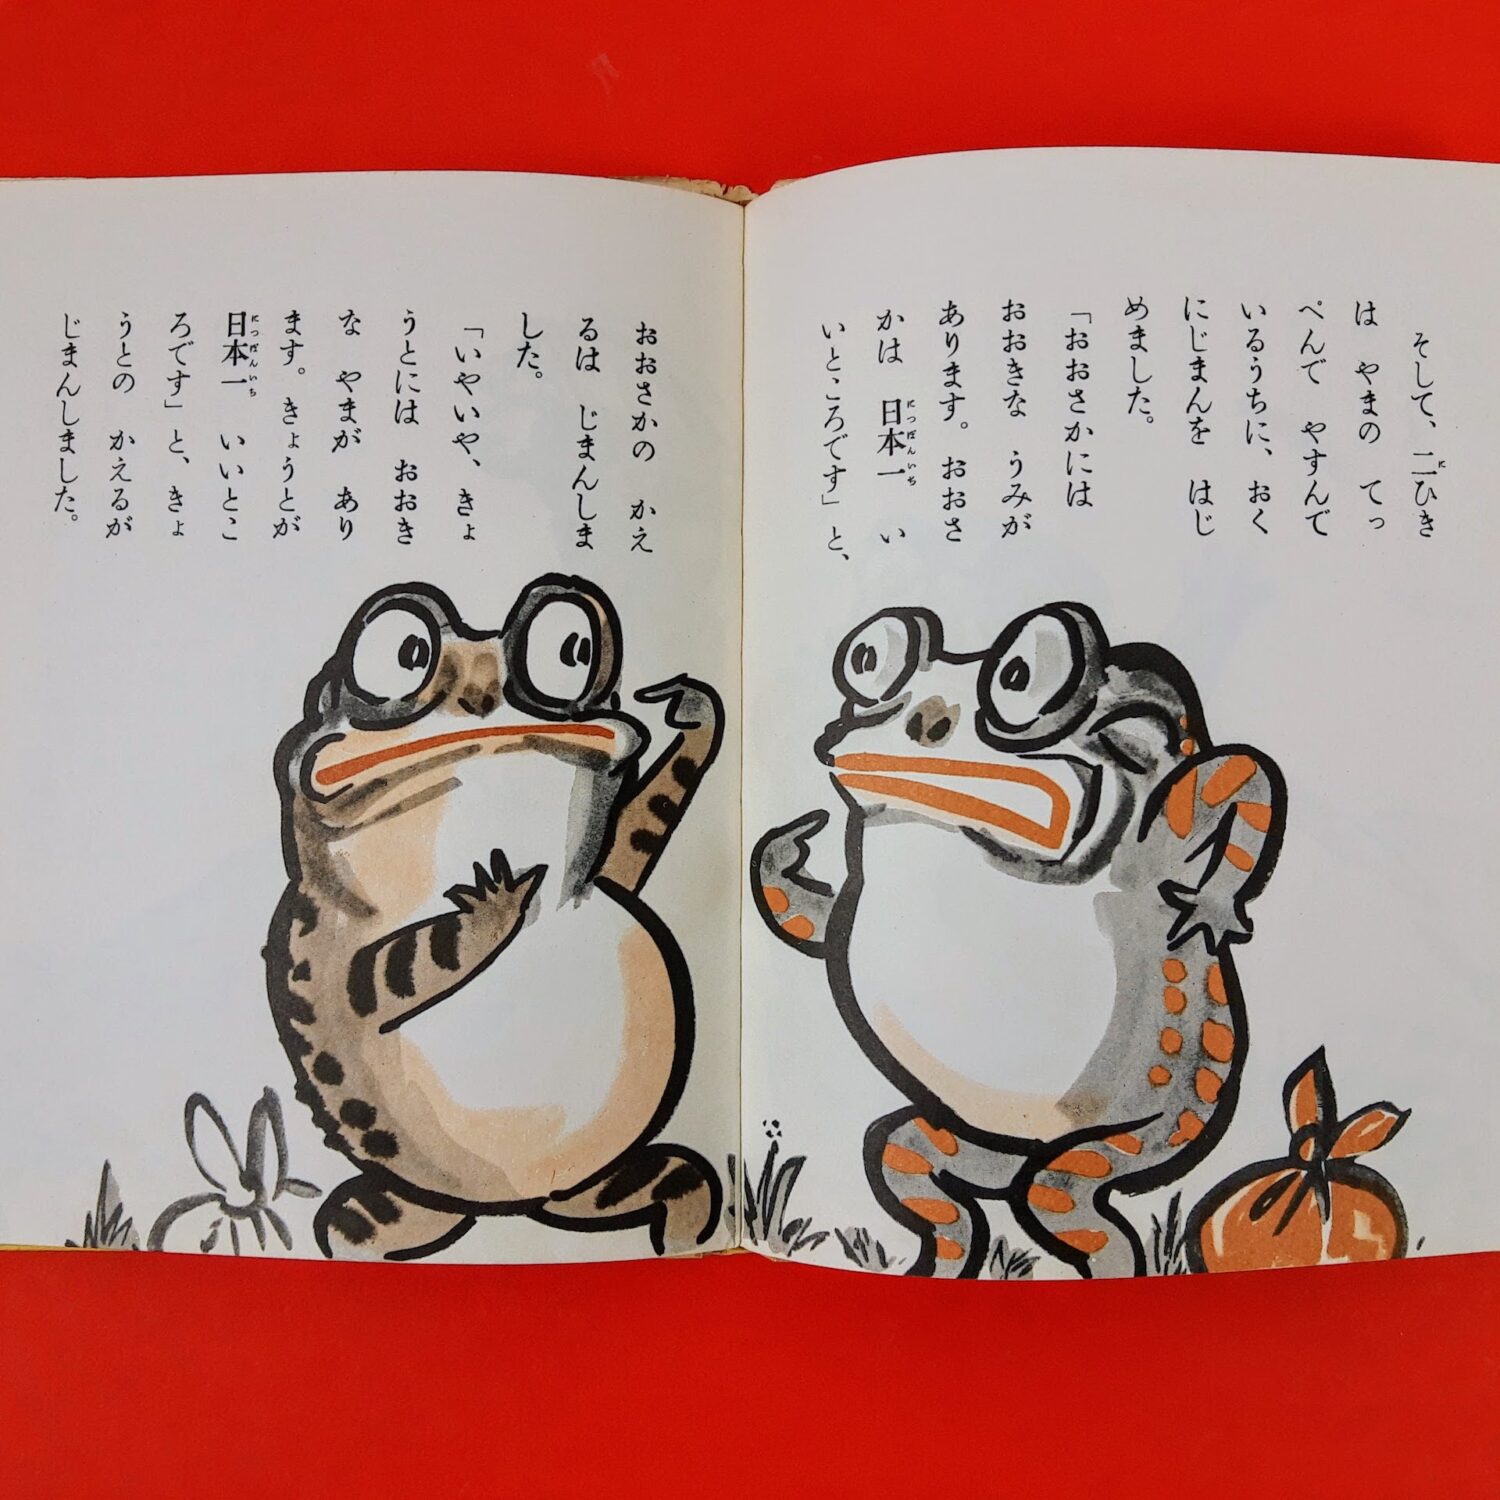 そして、二ひき
は やまの てっ
ぺんで やすんで
いるうちに、おく
にじまんを はじ
めました。
「おおさかには
おおきな うみが
あります。おおさ
かは 日本一 い
いところです」と、
おおさかの かえ
るは じまんしま
した。
「いやいや、きょ
うとには おおき
な やまが あり
ます。きょうとが
日本一 いいとこ
ろです」と、きょ
うとの かえるが
じまんしました。